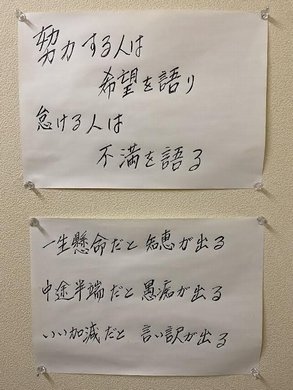 努力する人は
希望を語り
怠ける人は
不満を語る
一生懸命だと 知恵が出る
中途半端だと 愚痴が出る
いい加減だと 言い訳が出る